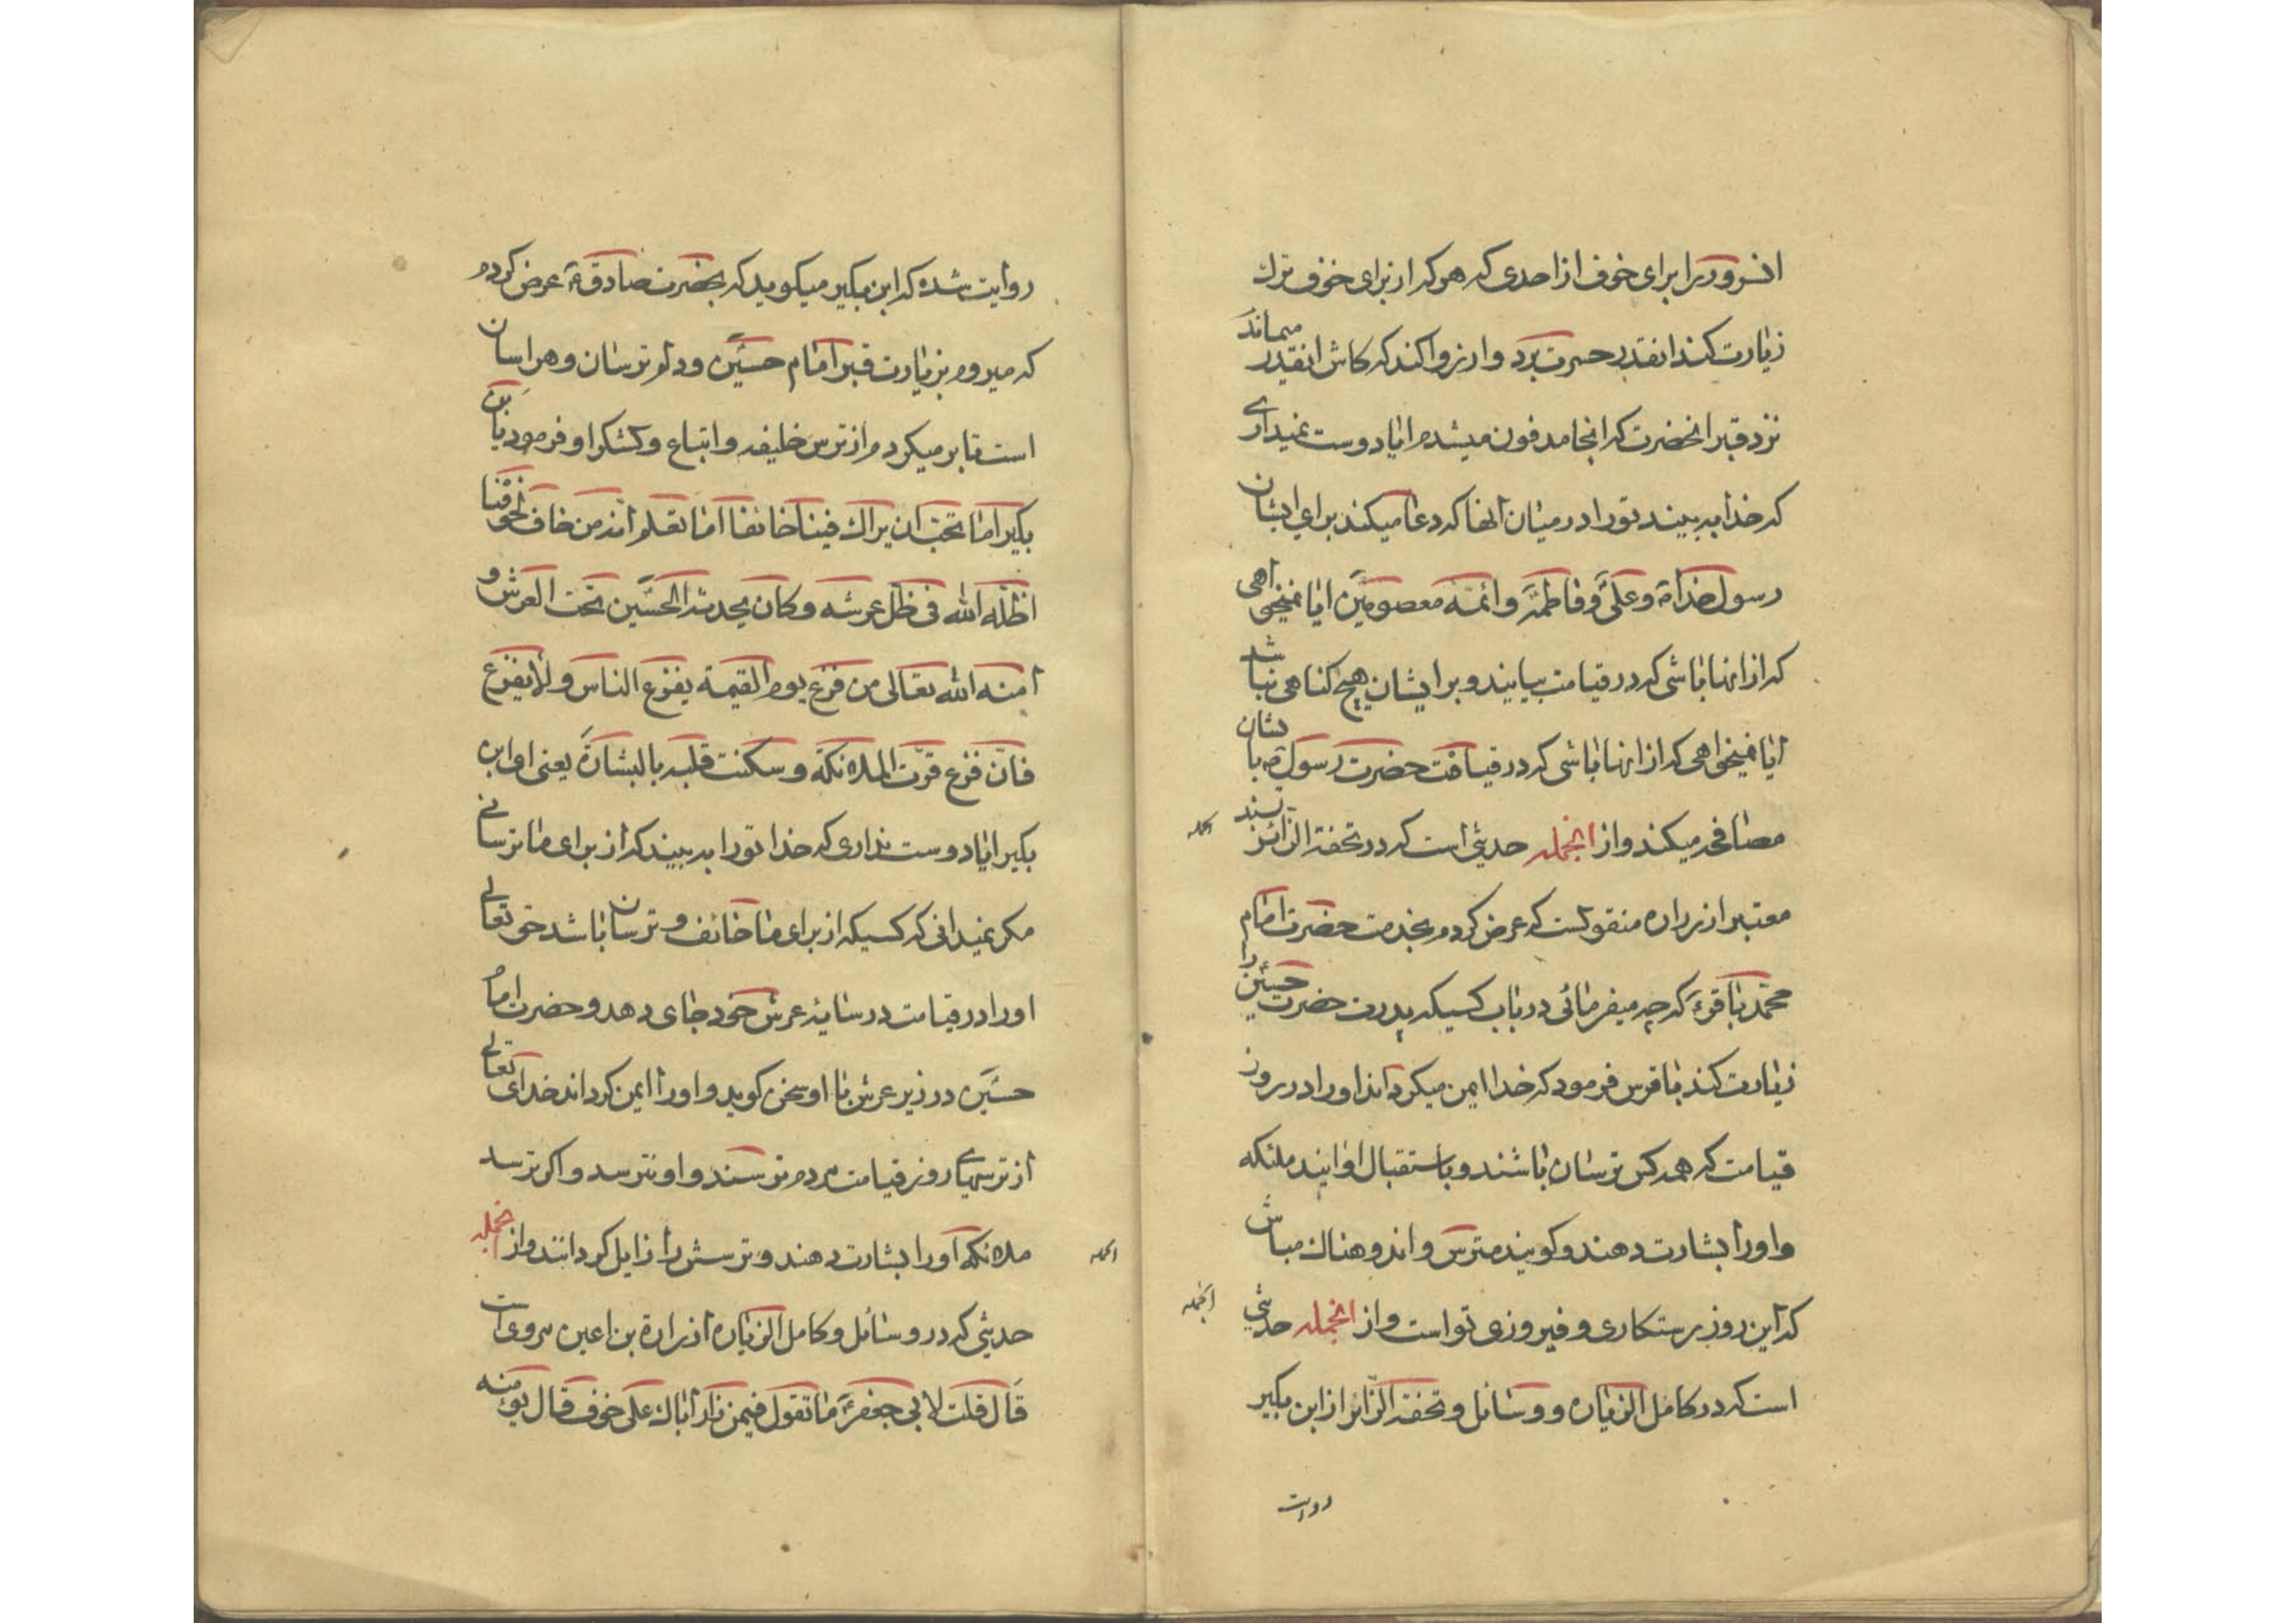 انسرور را برای خوف از احدی که هرکه از برای خوف ترك
زیارت کند انقدر حسرت برد و ارزوا کند که کاش انقدر میماند
نزد قبر انحضرت که انجا مدفون میشدم ایا دوست نمیداری
که خدا به بیند تورا در میان انها که دعا میکند برای ایشان
رسول خدا ص و علی و فاطمه و ائمه معصومین ایا نمیخواهی
که از انها باشی که در قیامت بیایند و بر ایشان هیچ کناهی نباشد
ایا نمیخواهی که از انها باشی که در قیامت حضرت رسول ص با ایشان
مصافحه میکند و از انجمله حدیثی است که در تحفة الزائر بسند
معتبر از زراره منقولست که عرض کردم بخدمت حضرت امام
محمد باقر ع که چه میفرمائی در باب کسیکه پدرت حضرت حسین را
زیارت کند با ترس فرمود که خدا ایمن میکرداند او را در روز
قیامت که همه کس ترسان باشند و باستقبال او ایند ملئکه
و اورا بشارت دهند و کویند مترس و اندوهناك مباش
که این روز رستکاری و فیروزی تو است و از انجمله حدیثی
است که در کامل الزیاره و وسائل و تحفة الزائر از ابن بکیر
روایت
روایت شده که ابن بکیر میکوید که بحضرت صادق ع عرض کردم
که میروم بزیارت قبر امام حسین و دلم ترسان و هراسان
است تا بر میکردم از ترس خلیفه و اتباع و لشکر او فرمود یابن
بکیر اما تحب ان یراك فینا خائفا اما تعلم انه من خاف لخوفنا
اظله الله فی ظل عرشه و کان یحدثه الحسین تحت العرش و
امنه الله تعالی من فزع یوم القیمة یفزع الناس و لا یفزع
فان فزع قرت الملائکة و سکنت قلبه بالبشارة یعنی ای ابن
بکیر ایا دوست نداری که خدا تورا به بیند که از برای ما ترسانی
مکر نمیدانی که کسیکه از برای ما خائف و ترسان باشد حق تعالی
اورا در قیامت در سایه عرش خود جای دهد و حضرت امام
حسین در زیر عرش با او سخن کوید و اورا ایمن کرداند خدای تعالی
از ترسهای روز قیامت مردم ترسند و او نترسد و اکر ترسد
ملائکه اورا بشارت دهند و ترسش را زایل کردانند و از انجمله
حدیثی که در وسائل و کامل الزیاره از زرارة بن اعین مروی است
قال قلت لابی جعفر ع ما تقول فیمن زار اباك علی خوف قال یؤمنه